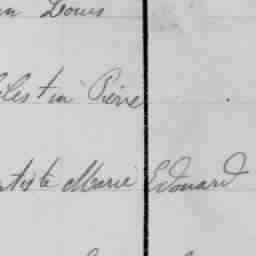 n Louis
lestin Pierre
tiste Marie Edouard